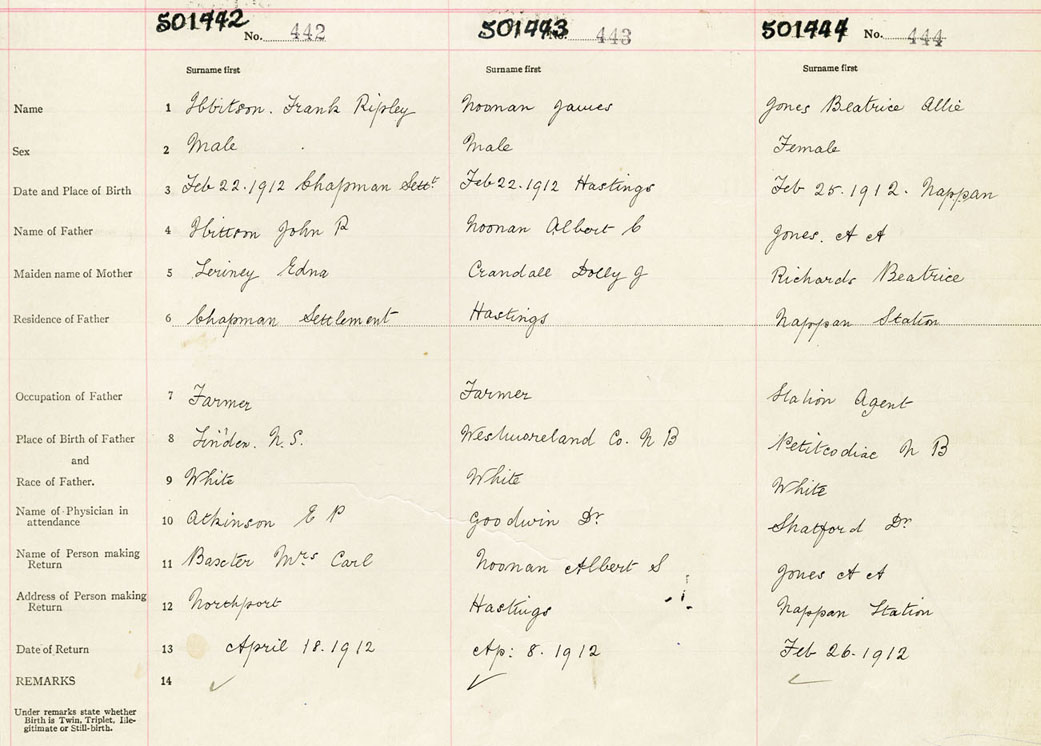 501442 No. 442 501443 No. 443 501444 No. 444
Surname first Surname first Surname first
Name 1 Ibbitson. Frank Ripley Noonan James Jones Beatrice Allie
Sex 2 Male Male Female
Date and Place of Birth 3 Feb 22.1912 Chapman Settt Feb 22.1912 Hastings Feb 25.1912. Nappan
Name of Father 4 John R Noonan Albert C Jones. A A
Maiden name of Mother 5 Edna Crandall Dolly J Richards Beatrice
Residence of Father 6 Chapman Settlement Hastings Nappan Station
Occupation of Father 7 Farmer Farmer Station Agent
Place of Birth of Father 8 Linden. N.S. Westmoreland Co. N B Petitcodiac N B
and
Race of Father. 9 White White White
Name of Physician in
attendance 10 Atkinson E P Goodwin Dr Shatford Dr
Name of Person making
Return 11 Baxter Mrs Carl Noonan Albert S Jones A A
Address of Person making
Return 12 Northport Hastings Nappan Station
Date of Return 13 April 18.1912 Ap: 8.1912 Feb 26.1912
REMARKS 14
Under remarks state whether
Birth is Twin, Triplet, Ille-
gitimate or Still-birth.